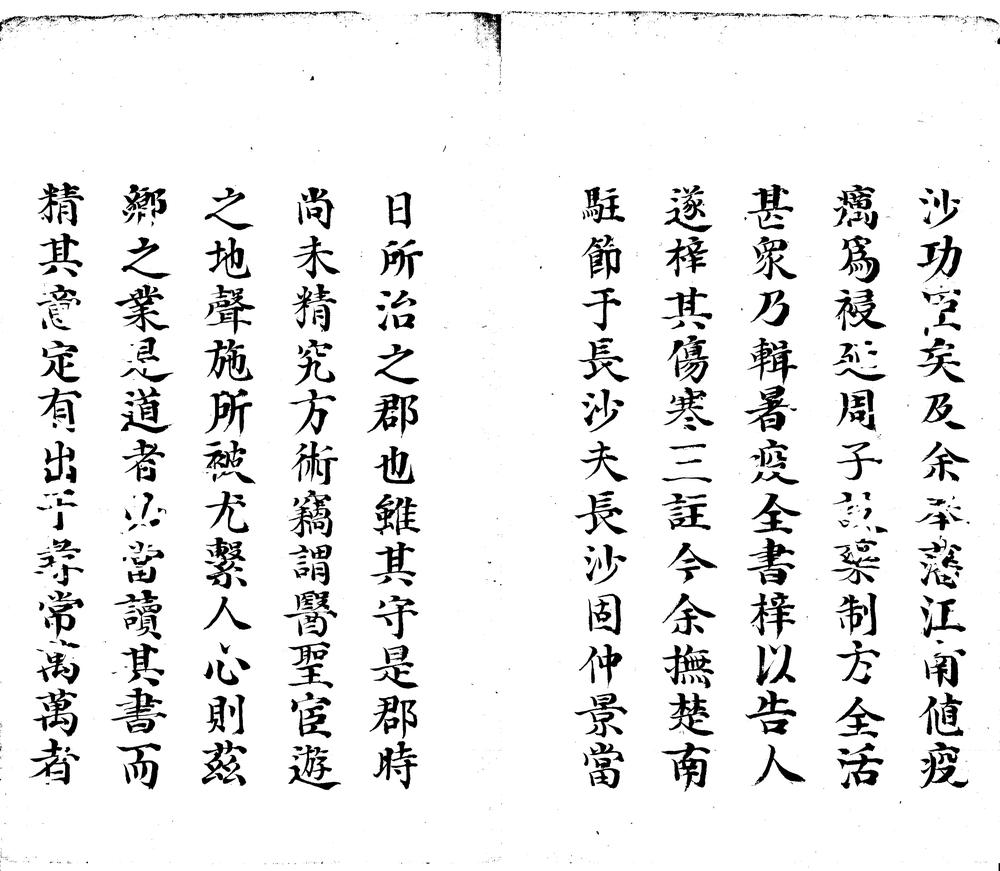 沙功矣及余藩江南值疫
癘爲祲延周子設藥制方全活
甚衆乃輯暑疫全書梓以告人
遂梓其傷寒三註今余撫楚南
駐節于長沙夫長沙固仲景當
日所治之郡也雖其守是郡時
尚未精究方術竊謂醫聖宦遊
之地聲施所被尤繫人心則茲
鄉之業是道者必當讀其書而
精其意定有出乎尋常萬萬者